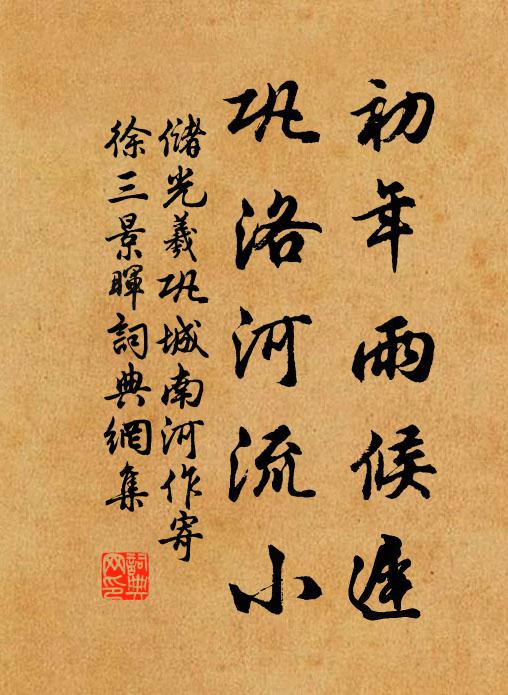 初年雨候遲
巩洛河流小
儲光羲巩城南河作寄
徐三景暉詞典網集
詞典網印